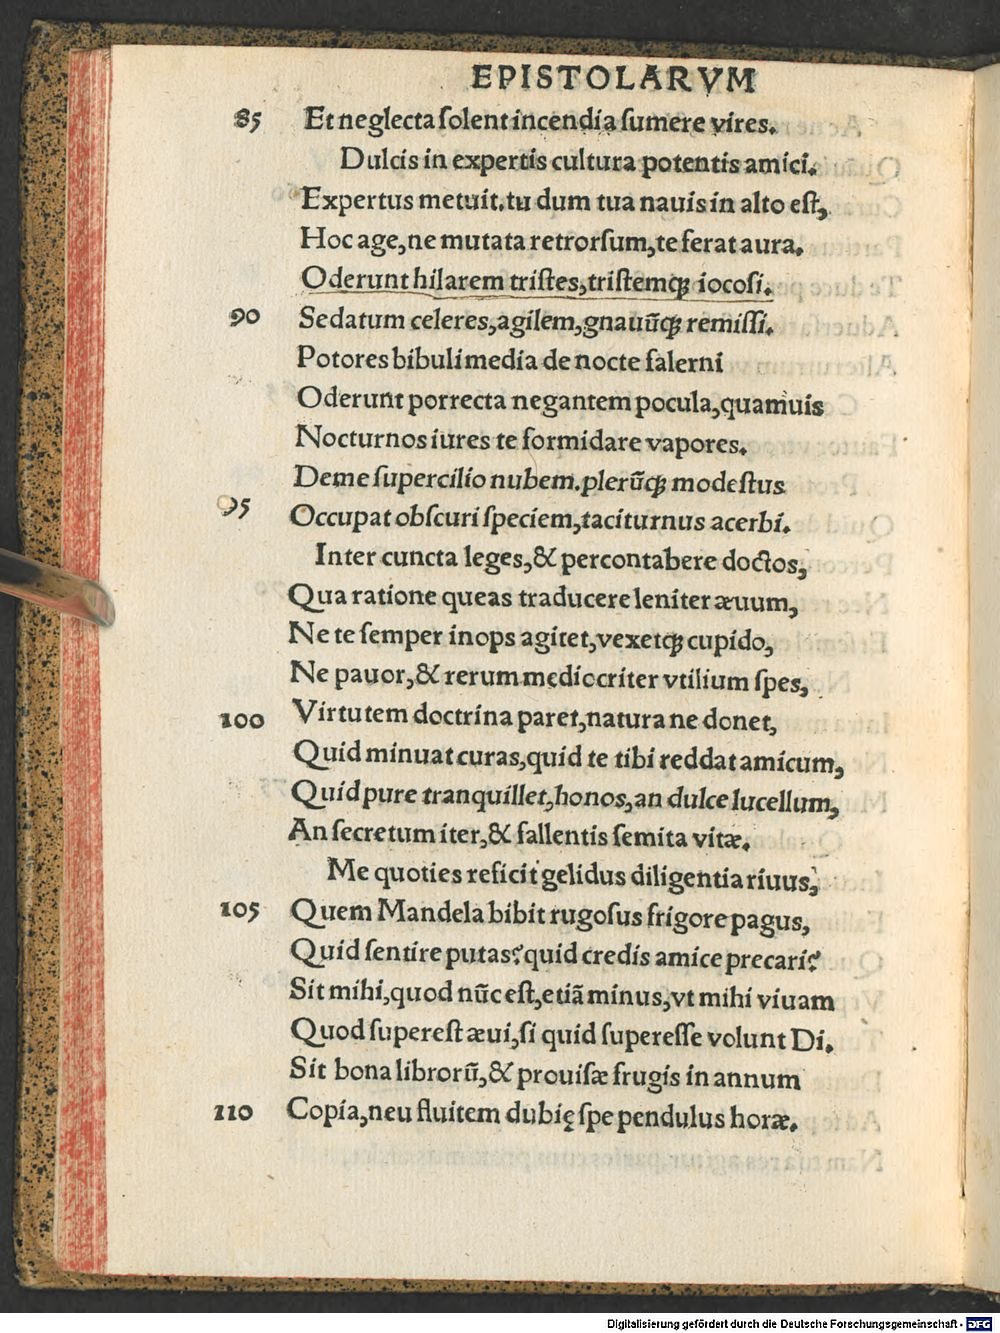 EPISTOLARVM
85 Et neglecta ſolent incendia ſumere vires.
Dulcis in expertis cultura potentis amici.
Expertus metuit. tu dum tua nauis in alto eſt,
Hoc age, ne mutata retrorſum, te ferat aura.
Oderunt hilarem triſtes, triſtemq́ꝫ iocoſi.
90 Sedatum celeres, agilem, gnauũqꝫ remiſſi.
Potores bibuli media de nocte falerni
Oderunt porrecta negantem pocula, quamuis
Nocturnos iures te formidare vapores.
Deme ſupercilio nubem. plerũqꝫ modeſtus
95 Occupat obſcuri ſpeciem, taciturnus acerbi.
Inter cuncta leges, & percontabere doctos,
Qua ratione queas traducere leniter æuum,
Ne te ſemper inops agitet, vexetqꝫ cupido,
Ne pauor, & rerum mediocriter vtilium ſpes,
100 Virtutem doctrina paret, natura ne donet,
Quid minuat curas, quid te tibi reddat amicum,
Quid pure tranquillet, honos, an dulce lucellum,
An ſecretum iter, & fallentis ſemita vitæ.
Me quoties reficit gelidus diligentia riuus,
105 Quem Mandela bibit rugoſus frigore pagus,
Quid ſentire putas? quid credis amice precari?
Sit mihi, quod nũc eſt, etiã minus, vt mihi viuam
Quod ſupereſt æui, ſi quid ſupereſſe volunt Di.
Sit bona librorũ, & prouiſæ frugis in annum
110 Copia, neu fluitem dubię ſpe pendulus horæ.
Digitalisierung gefördert durch die Deutsche Forschungsgemeinschaft - DFG